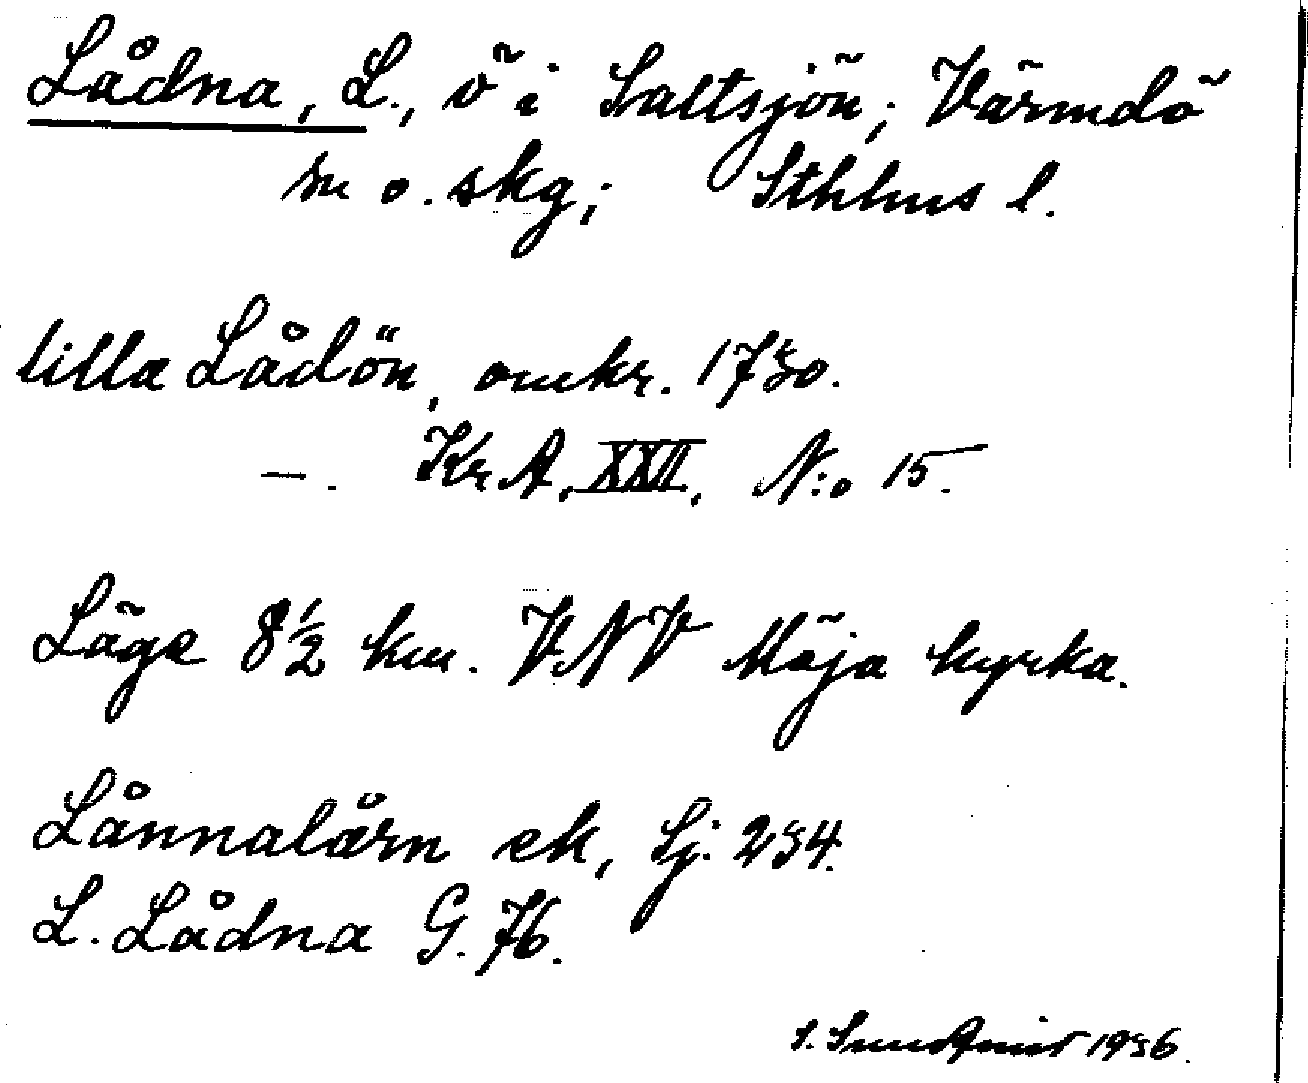 Lådna, L., ö i Saltsjön; Värmdö
sn o. skg; Sthlms l.
lilla Lådön, omkr. 1730.
—. Kr. A. XXII. N:o 15.
Läge 8½ km. VNV Möja kyrka.
ek, Sj. 234.
L. Lådna G. 76.
S. 1936.